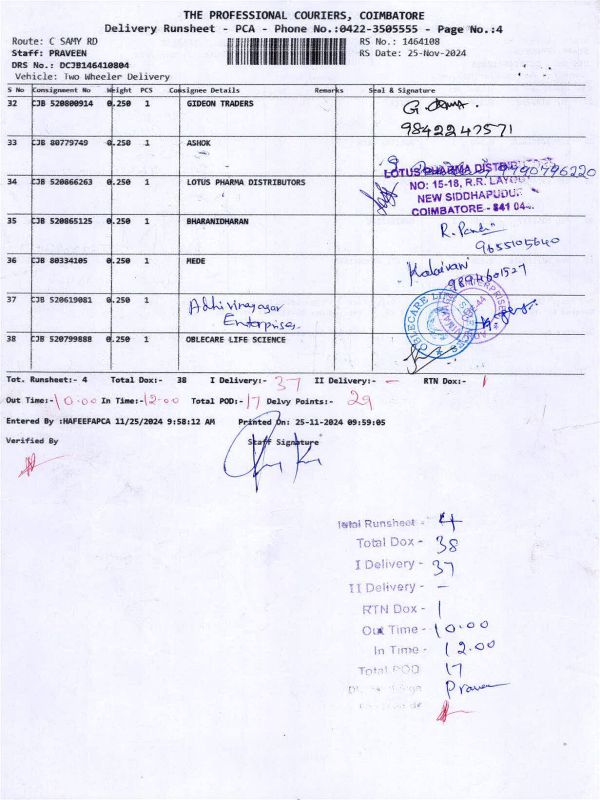 THE PROFESSIONAL COURIERS, COIMBATORE
Delivery Runsheet - PCA - Phone No.:0422-3505555 - Page No.:4
Route: C SAMY RD RS No.: 1464108
Staff: PRAVEEN RS Date: 25-Nov-2024
DRS No.: DCJB146410804
Vehicle: Two Wheeler Delivery
S No Consignment No Weight PCS Consignee Details Remarks Seal & Signature
32 CJB 520800914 0.250 1 GIDEON TRADERS
9842247571
33 CJB 80779749 0.250 1 ASHOK
9790796220
34 CJB 520866263 0.250 1 LOTUS PHARMA DISTRIBUTORS
LOTUS PHARMA
NO: 15-18, R.R. LAYOUT
NEW SIDDHAPUDUR
COIMBATORE - 641 04
35 CJB 520865125 0.250 1 BHARANIDHARAN
9655105640
36 CJB 80334105 0.250 1 MEDE Kalaivani
9894601527
37 CJB 520619081 0.250 1 Adhi vinayagar
Enterprises
38 CJB 520799888 0.250 1 OBLECARE LIFE SCIENCE
Tot. Runsheet:- 4 Total Dox:- 38 I Delivery:- 37 II Delivery:- - RTN Dox:- 1
Out Time:- 10.00 In Time:- 12.00 Total POD:- 17 Delvy Points:- 29
Entered By :HAFEEFAPCA 11/25/2024 9:58:12 AM Printed On: 25-11-2024 09:59:05
Verified By Staff Signature
Total Runsheet - 4
Total Dox - 38
I Delivery - 37
II Delivery - -
RTN Dox - 1
Out Time - 10.00
In Time - 12.00
Total POD 17
Praveen